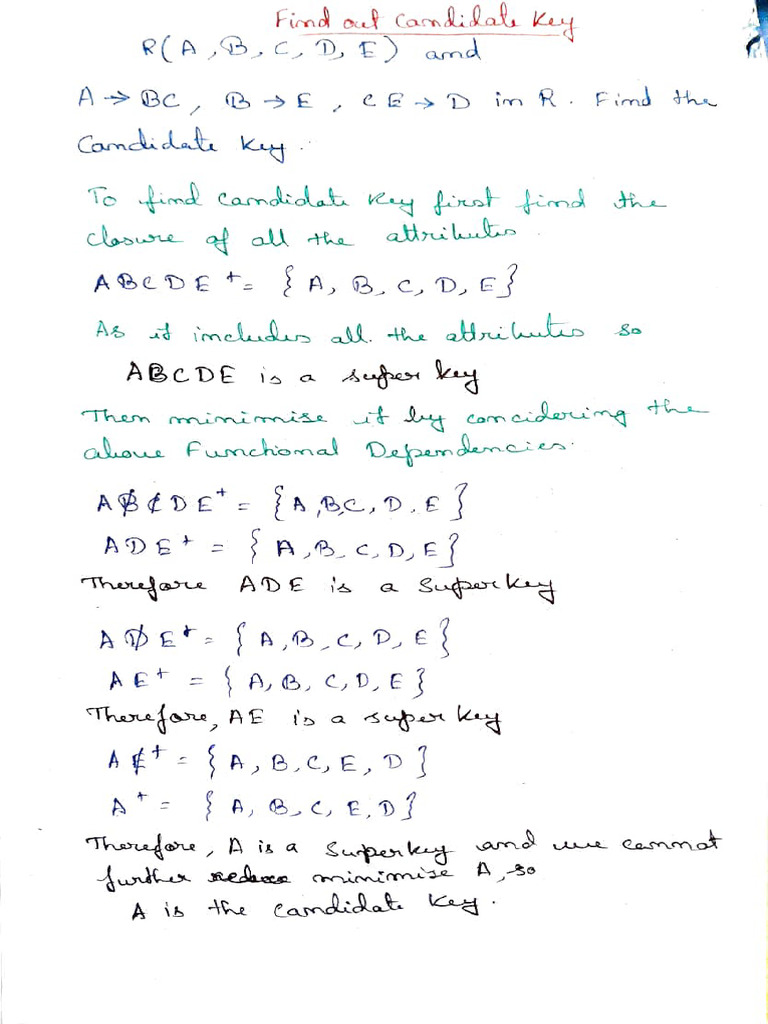 Find out Candidate Key
R(A, B, C, D, E) and
A → BC, B → E, CE → D in R. Find the
Candidate Key.
To find candidate key first find the
closure of all the attributes.
ABCDE⁺ = {A, B, C, D, E}
As it includes all the attributes so
ABCDE is a super key
Then minimise it by concidering the
above Functional Dependencies.
AB̸C̸DE⁺ = {A, B, C, D, E}
ADE⁺ = {A, B, C, D, E}
Therefore ADE is a Superkey
AD̸E⁺ = {A, B, C, D, E}
AE⁺ = {A, B, C, D, E}
Therefore, AE is a super key
AE̸⁺ = {A, B, C, E, D}
A⁺ = {A, B, C, E, D}
Therefore, A is a Superkey and we cannot
further minimise A, so
A is the candidate key.